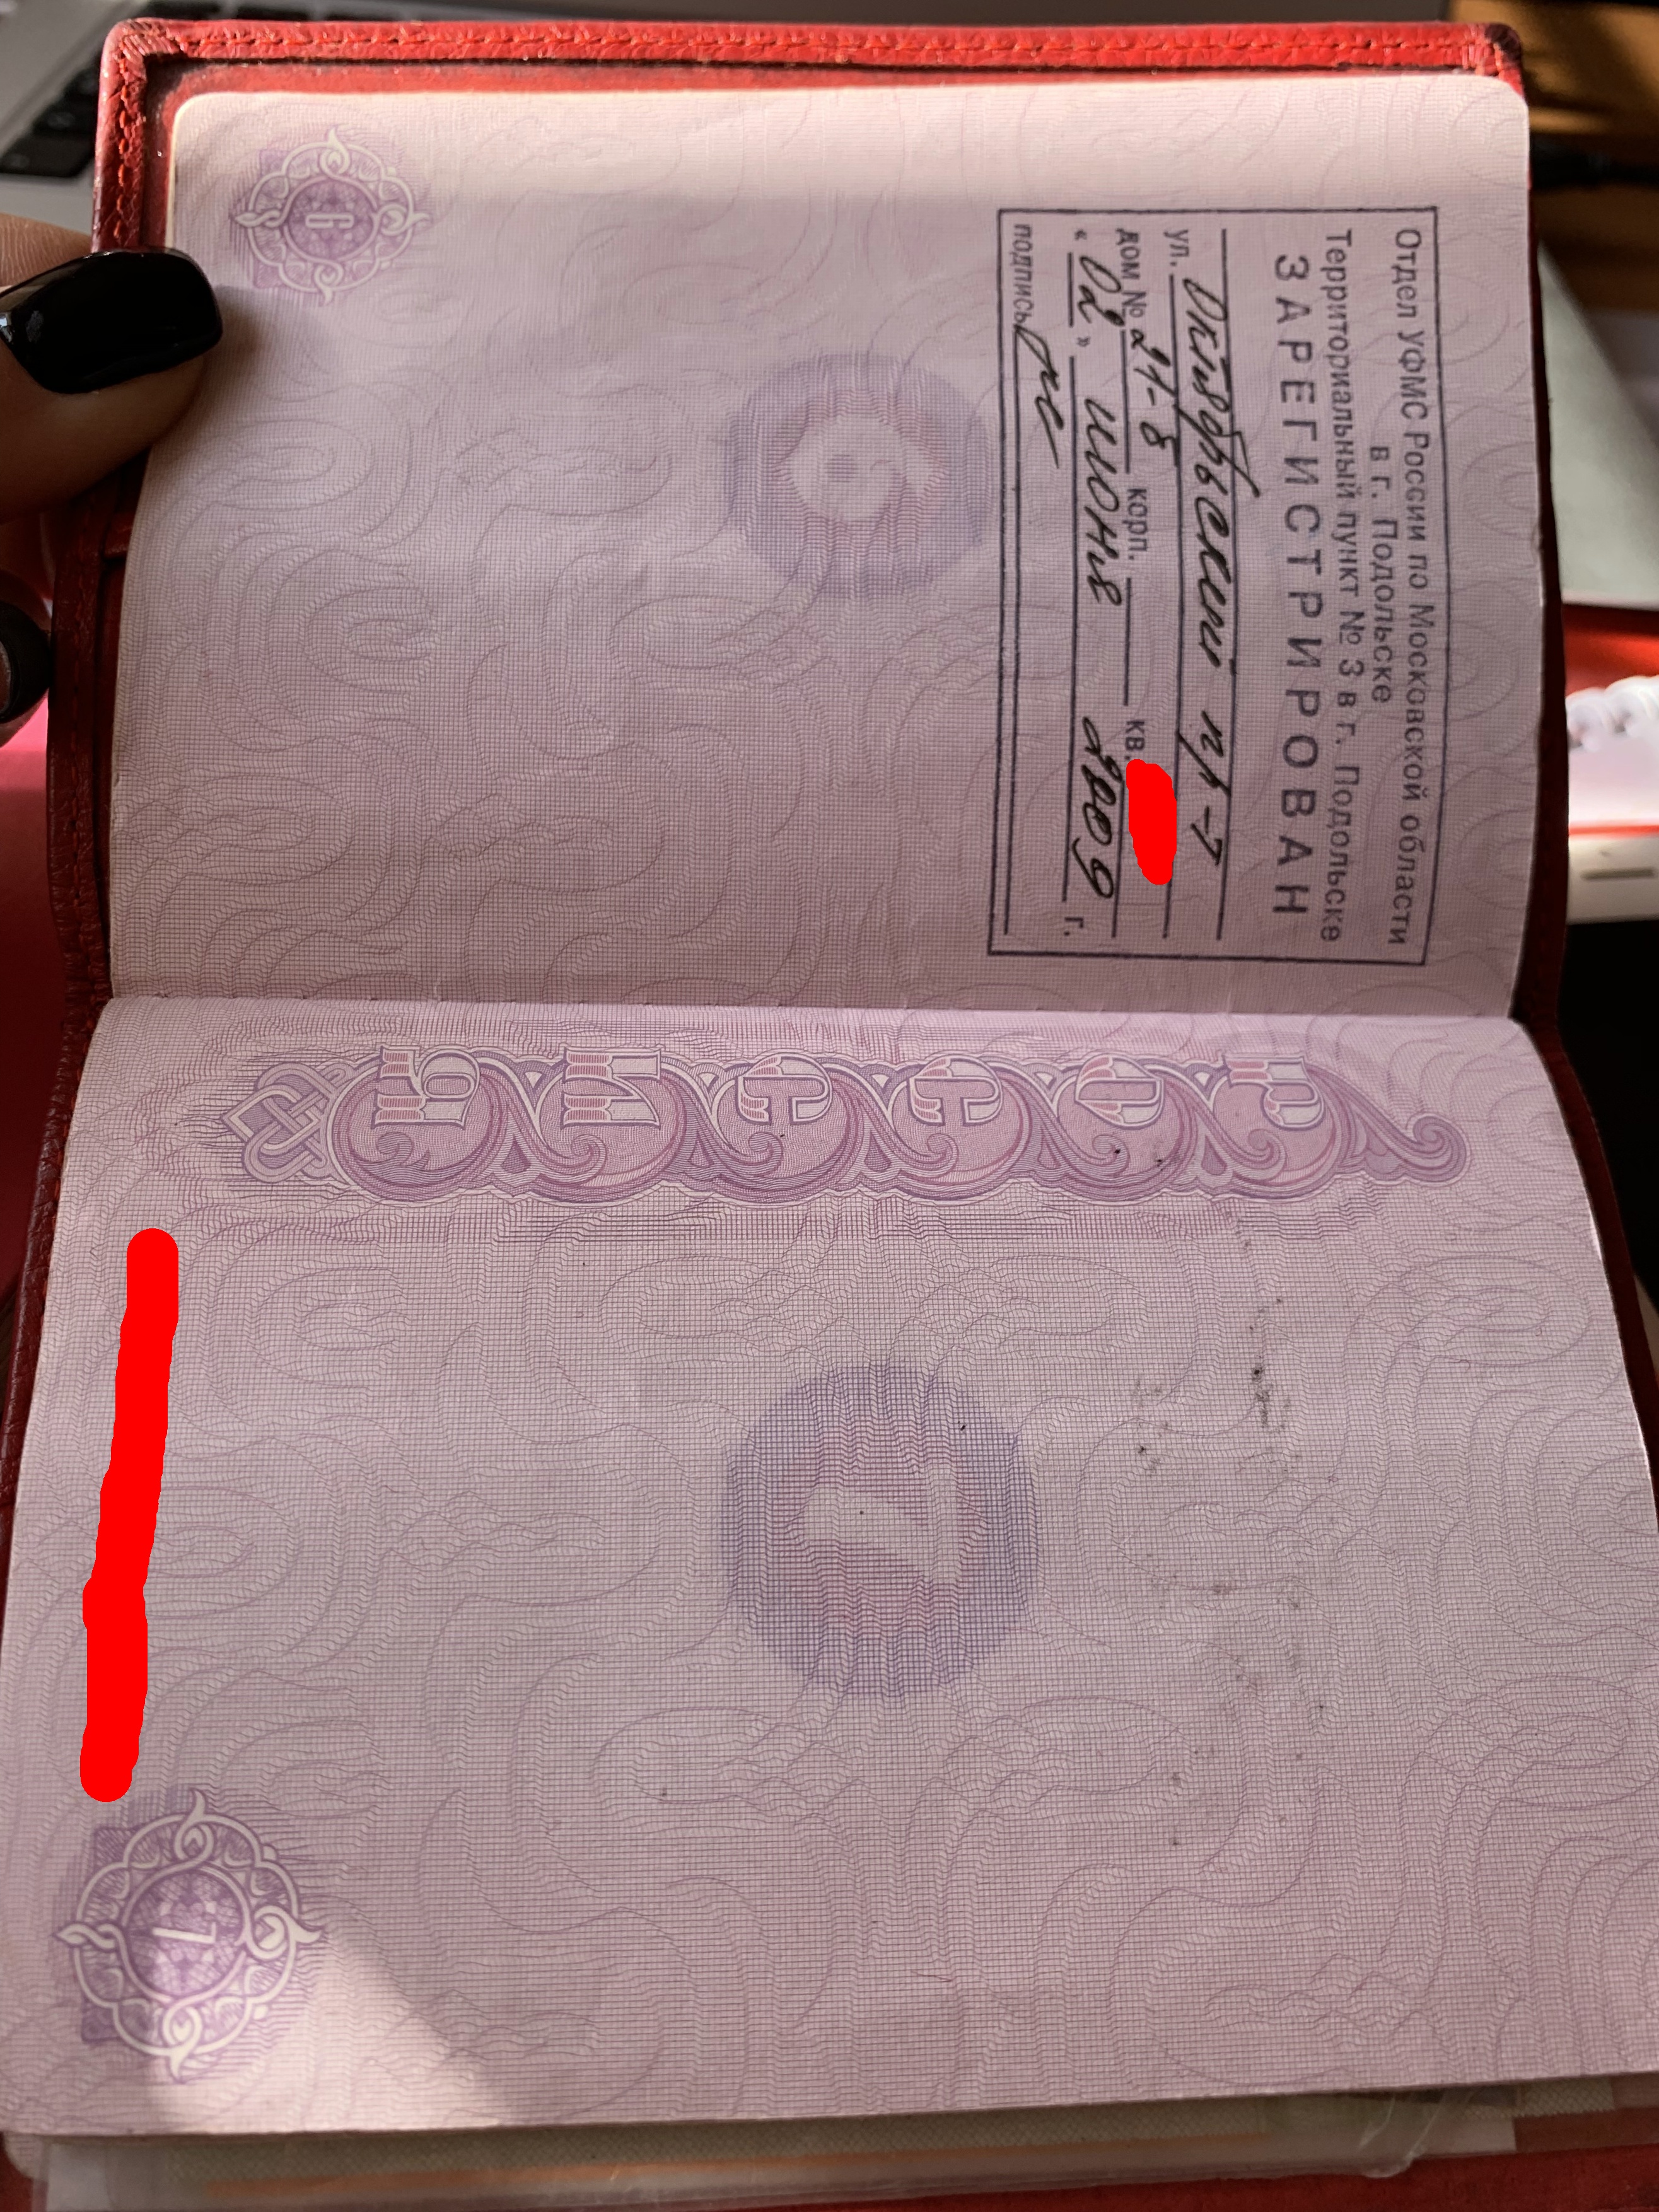 Отдел УФМС России по Московской области
в г. Подольске
Территориальный пункт № 3 в г. Подольске
ЗАРЕГИСТРИРОВАН
ул. Октябрьский пр-т
дом № 21-б корп. кв.
« 02 » июня 2009 г.
подпись
6
РОССИЯ
7